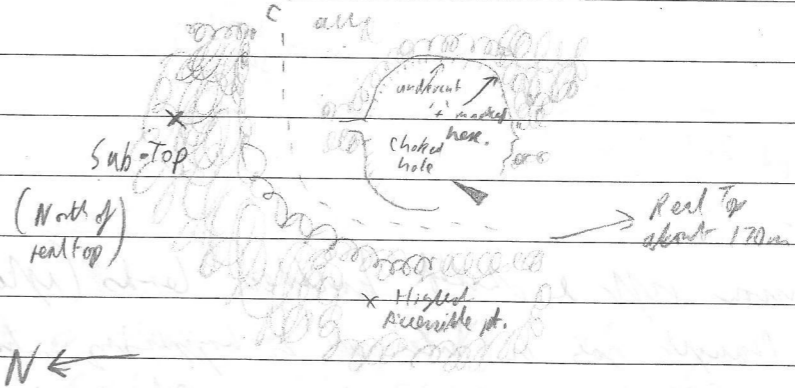 C
undercut
+
here.
Choked
hole
Sub-Top
(North of
real top)
Real Top
about 170m
x Highest
Accessible pt.
N